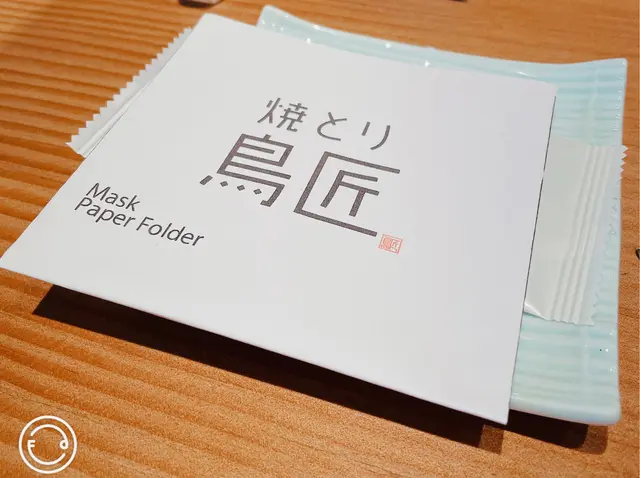 焼とり
鳥匠
Mask
Paper Folder
F d